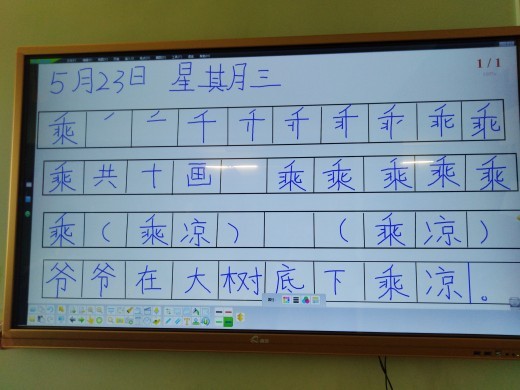 1/1
5月23日 星期三
乘 丿 二 千 乖
乘 共 十 画 乘 乘 乘 乘 乘
乘 （ 乘 凉 ） （ 乘 凉 ）
爷 爷 在 大 树 底 下 乘 凉 。